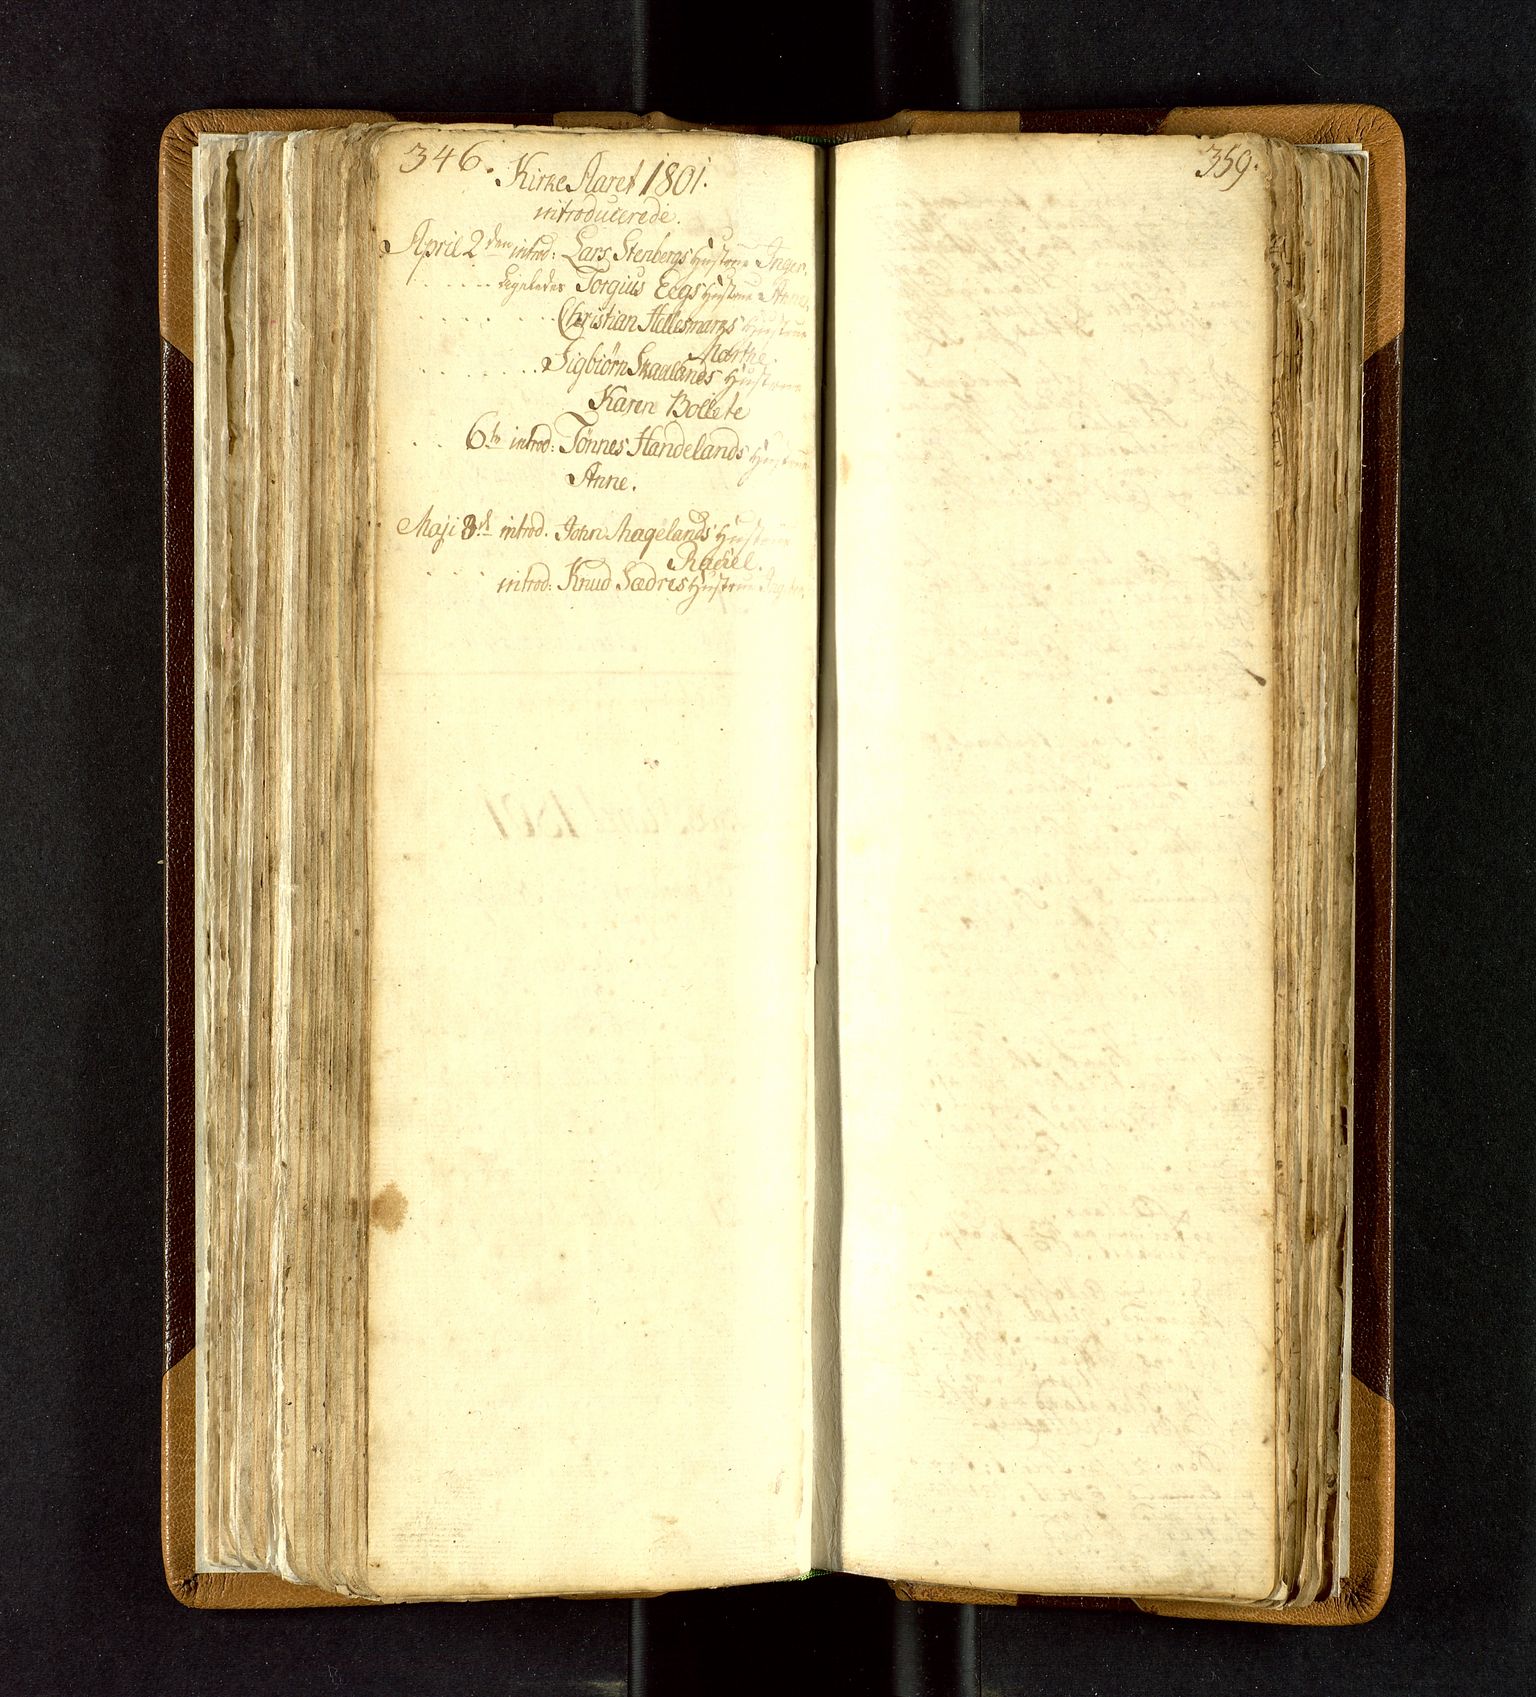 346.
Kirke Aaret 1801.
introducerede.
April 2den introd: Lars Stenbergs Hustrue Inger.
. . . . . . Ligeledes Torgius Eegs Hustrue Anne,
. . . . . . . Christian Hellesmarks Hustrue
Marthe.
. . . . . . . . Sigbiörn Skaalands Hustrue
Karen Bollete
. . . 6te introd: Tönnes Handelands Hustrue
Anne.
Maji 3d introd. John Magelands Hustrue
Rachel.
introd: Knud Sædres Hustrue
359.